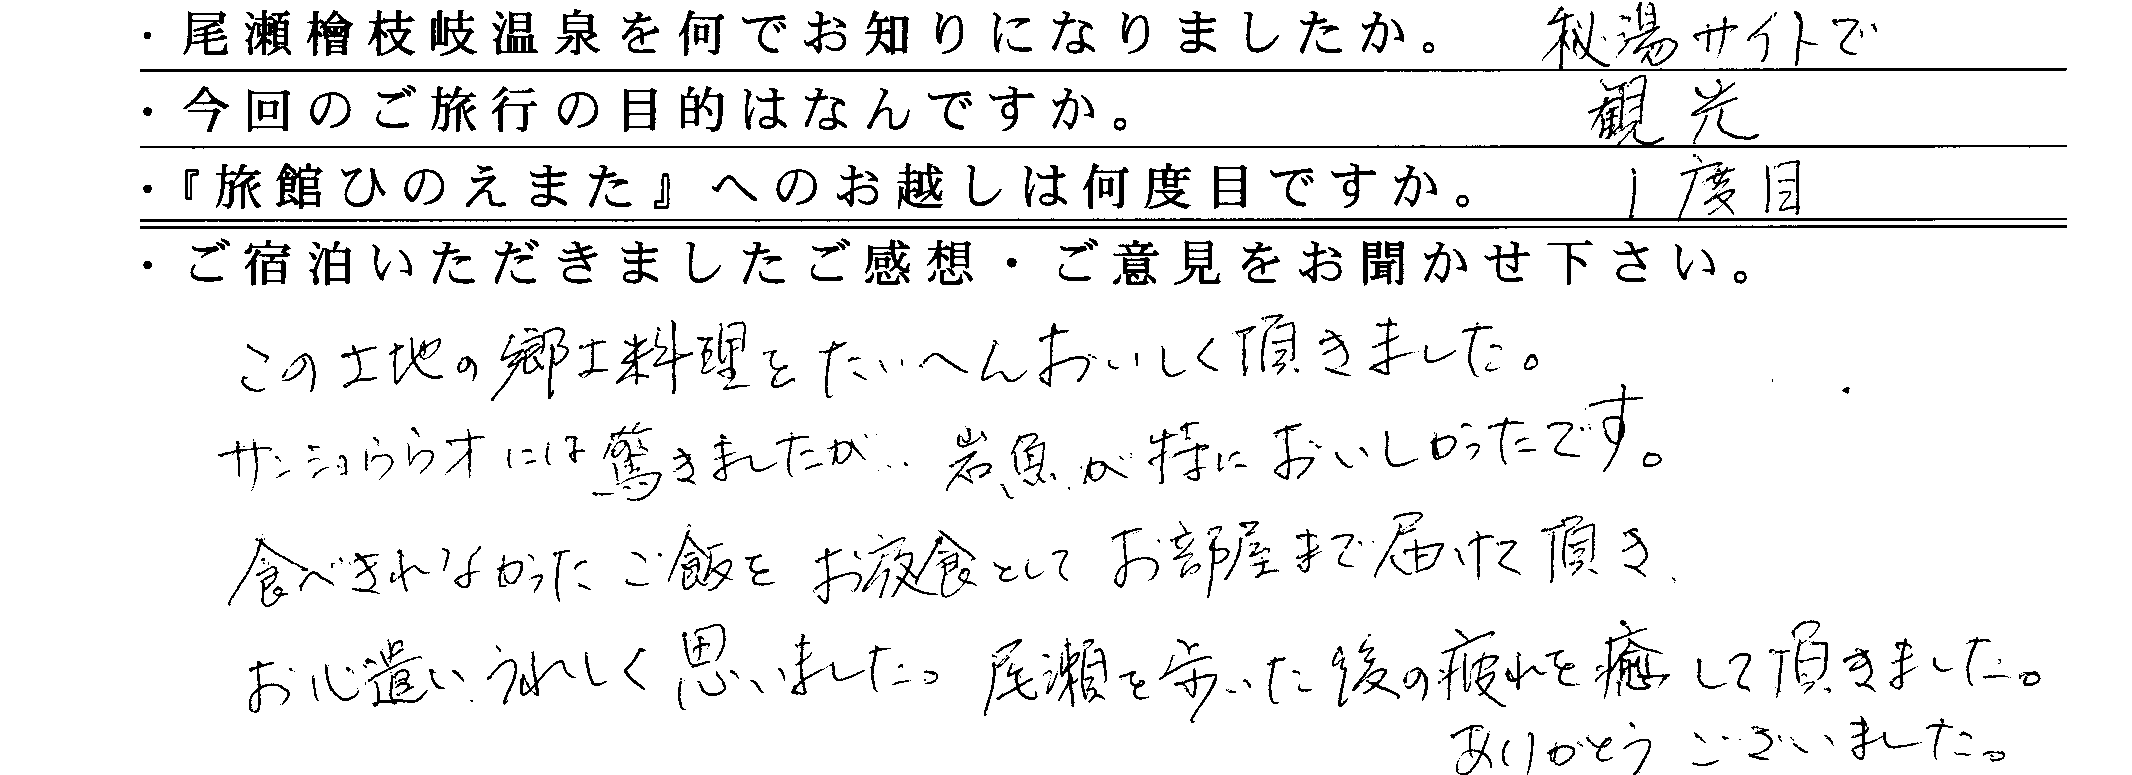 ・尾瀬檜枝岐温泉を何でお知りになりましたか。 秘湯サイトで
・今回のご旅行の目的はなんですか。 観光
・『旅館ひのえまた』へのお越しは何度目ですか。 1度目
・ご宿泊いただきましたご感想・ご意見をお聞かせ下さい。
この土地の郷土料理をたいへんおいしく頂きました。
サンショウウオには驚きましたが、岩魚が特においしかったです。
食べきれなかったご飯をお夜食としてお部屋まで届けて頂き、
お心遣いうれしく思いました。尾瀬を歩いた後の疲れを癒して頂きました。
ありがとうございました。